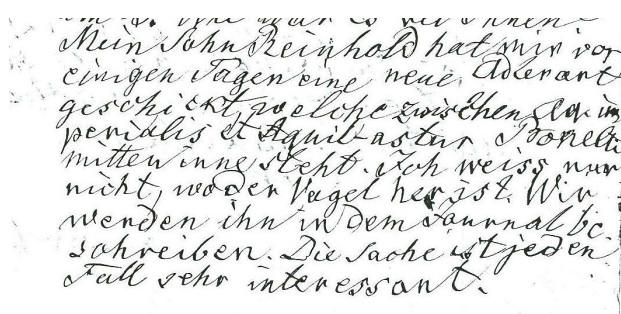 Wie war es bei Ihnen
Mein Sohn Reinhold hat mir vor
einigen Tagen eine neue Adlerart
geschickt, welche zwischen Aq. im
perialis et Aquil astur Bonelli
mitten inne steht. Ich weiss nur
nicht, wo der Vogel her ist. Wir
werden ihn in dem Journal be
schreiben. Die Sache ist jeden
Fall sehr interessant.